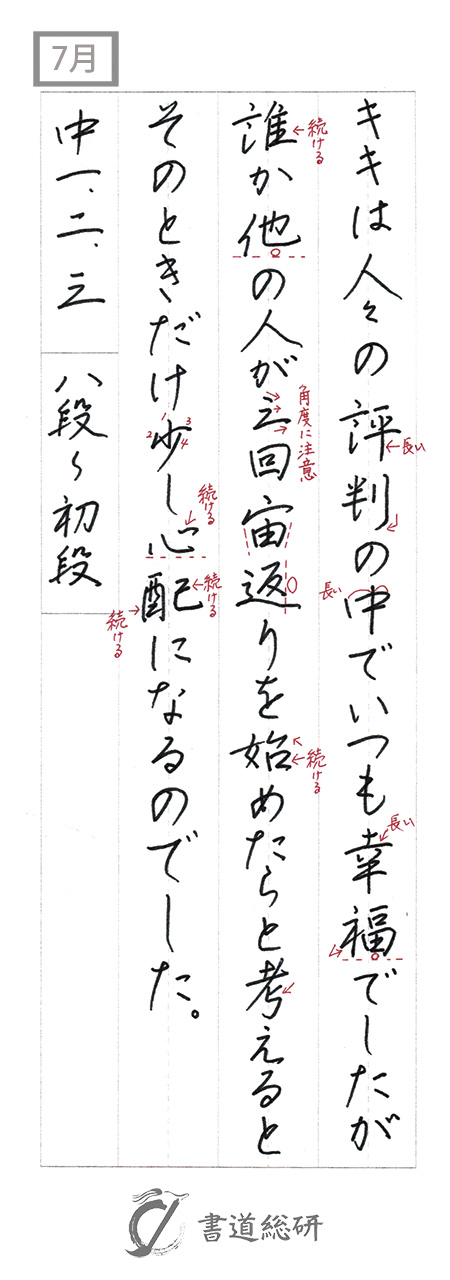 7月
キキは人々の評判の中でいつも幸福でしたが
誰か他の人が三回宙返りを始めたらと考えると
そのときだけ少し心配になるのでした。
中一、二、三
八段〜初段
長い
長い
長い
続ける
角度に注意
続ける
1
2
3
4
続ける
続ける
続ける
書道総研